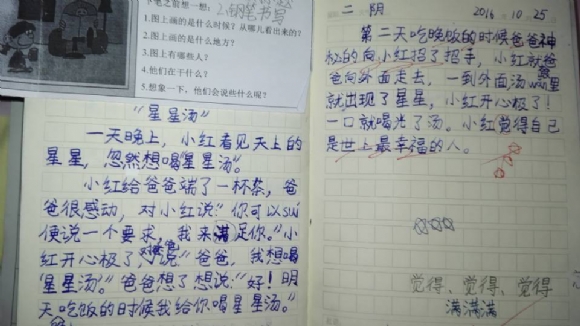 下笔之前想一想：2.钢笔书写
1.图上画的是什么时候？从哪儿看出来的？
2.图上画的是什么地方？
3.图上有哪些人？
4.他们在干什么？
5.想象一下，他们会说些什么呢？
“星星汤”
一天晚上，小红看见天上的
星星，忽然想喝“星星汤”。
小红给爸爸端了一杯茶，爸
爸很感动，对小红说：“你可以suí
便说一个要求，我来满足你。”小
红开心极了，说：“爸爸，我想喝
‘星星汤’”爸爸想了想说：“好！明
天吃饭的时候我给你喝星星汤。”
二 阴 2016.10.25
第二天吃晚饭的时候爸爸神
秘的向小红招了招手，小红就
爸向外面走去，一到外面汤wǎn里
就出现了星星，小红开心极了！
一口就喝光了汤。小红觉得自己
是世上最幸福的人。
觉得、觉得、觉得
满满满